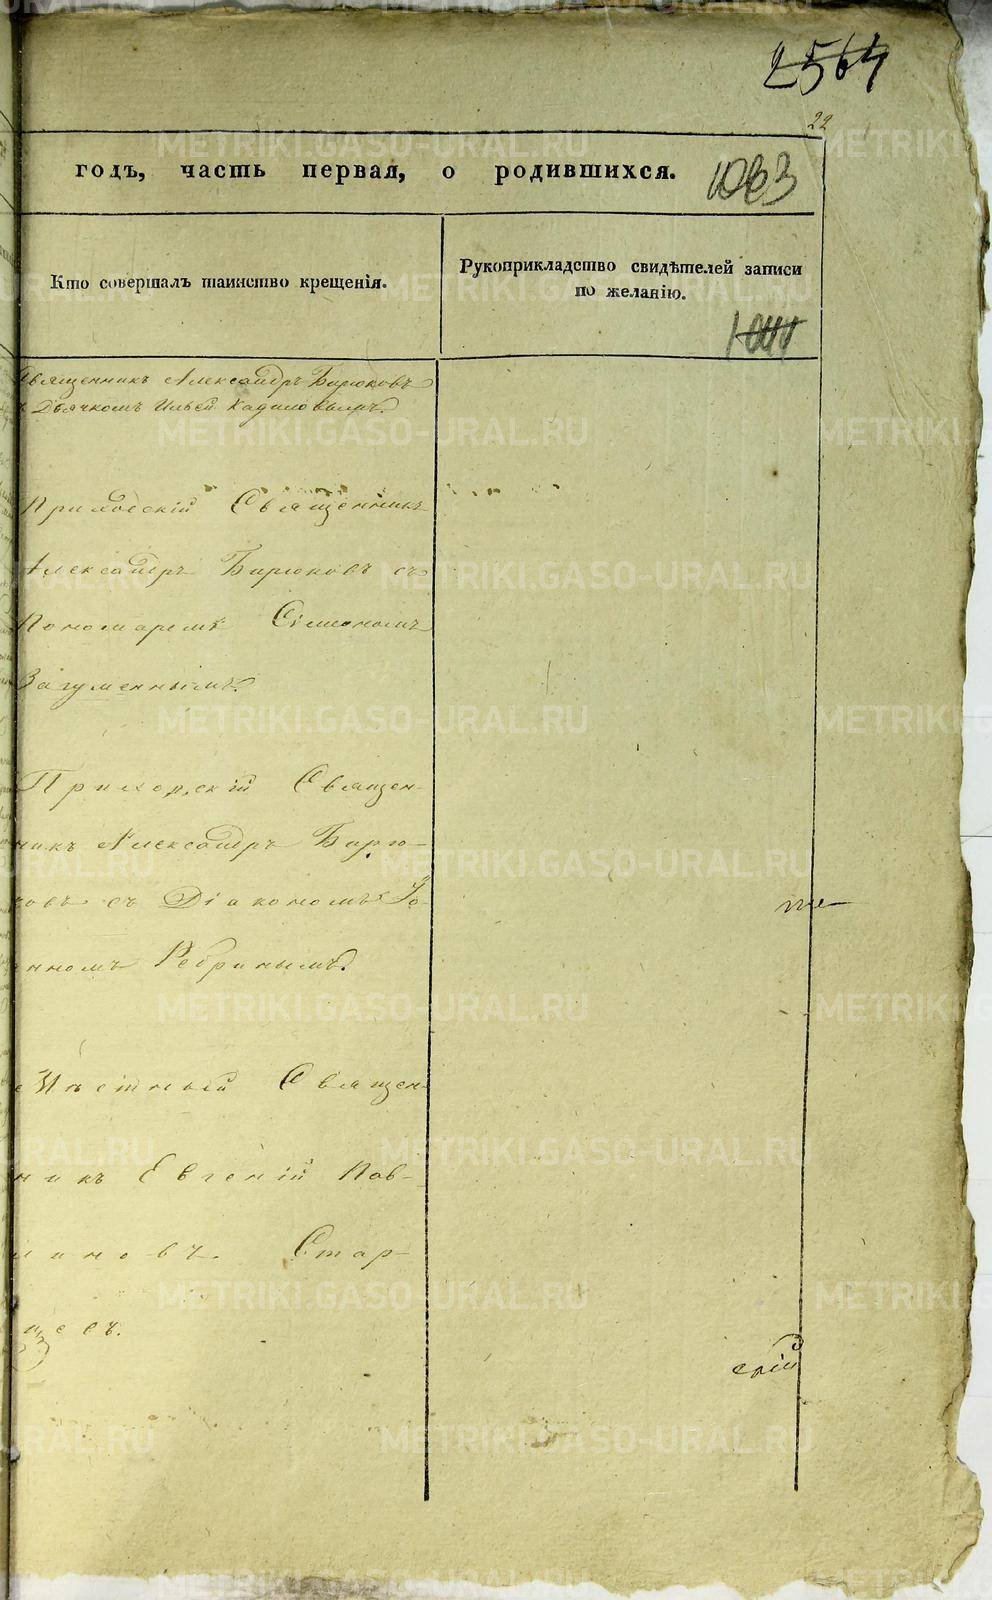 2564
22
годъ, часть первая, о родившихся.
1063
Кто совершалъ таинство крещенія.
Рукоприкладство свидѣтелей записи
по желанію.
Священникъ Александръ Бирюковъ
Дьячкомъ Ильей Кадиловымъ.
Приходскій Священникъ
Александръ Бирюковъ съ
Пономаремъ Сімеономъ
Загуменнымъ.
Приходскій Священ-
никъ Александръ Бирю-
ковъ съ Діакономъ Іо-
анномъ Ребринымъ.
Мѣстный Священ-
никъ Евгеній
Стар-
скій
METRIKI.GASO-URAL.RU